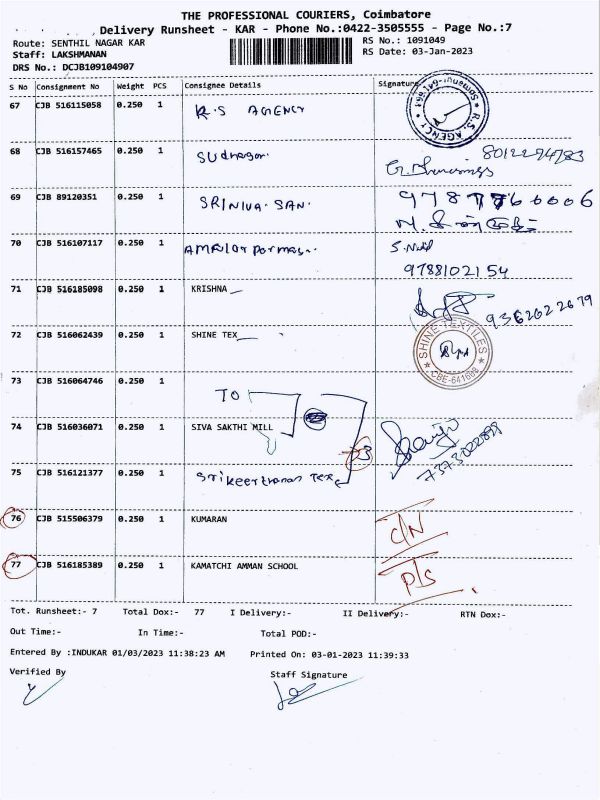 THE PROFESSIONAL COURIERS, Coimbatore
Delivery Runsheet - KAR - Phone No.:0422-3505555 - Page No.:7
Route: SENTHIL NAGAR KAR
RS No.: 1091049
Staff: LAKSHMANAN
RS Date: 03-Jan-2023
DRS No.: DCJB109104907
S No Consignment No Weight PCS Consignee Details Signature
67 CJB 516115058 0.250 1 R.S AGENCY
R.S. AGENCY
68 CJB 516157465 0.250 1 Sudnagar 8012294783
69 CJB 89120351 0.250 1 SRINIVA SAN.
70 CJB 516107117 0.250 1
9788102154
71 CJB 516185098 0.250 1 KRISHNA 9362622679
72 CJB 516062439 0.250 1 SHINE TEX
SHINE TEXTILES
CBE-641668
73 CJB 516064746 0.250 1
TO
74 CJB 516036071 0.250 1 SIVA SAKTHI MILL
23
7373022899
75 CJB 516121377 0.250 1 Srikeerthanan Tex
76 CJB 515506379 0.250 1 KUMARAN C/N
77 CJB 516185389 0.250 1 KAMATCHI AMMAN SCHOOL P/S
Tot. Runsheet:- 7 Total Dox:- 77 I Delivery:- II Delivery:- RTN Dox:-
Out Time:- In Time:- Total POD:-
Entered By :INDUKAR 01/03/2023 11:38:23 AM Printed On: 03-01-2023 11:39:33
Verified By Staff Signature